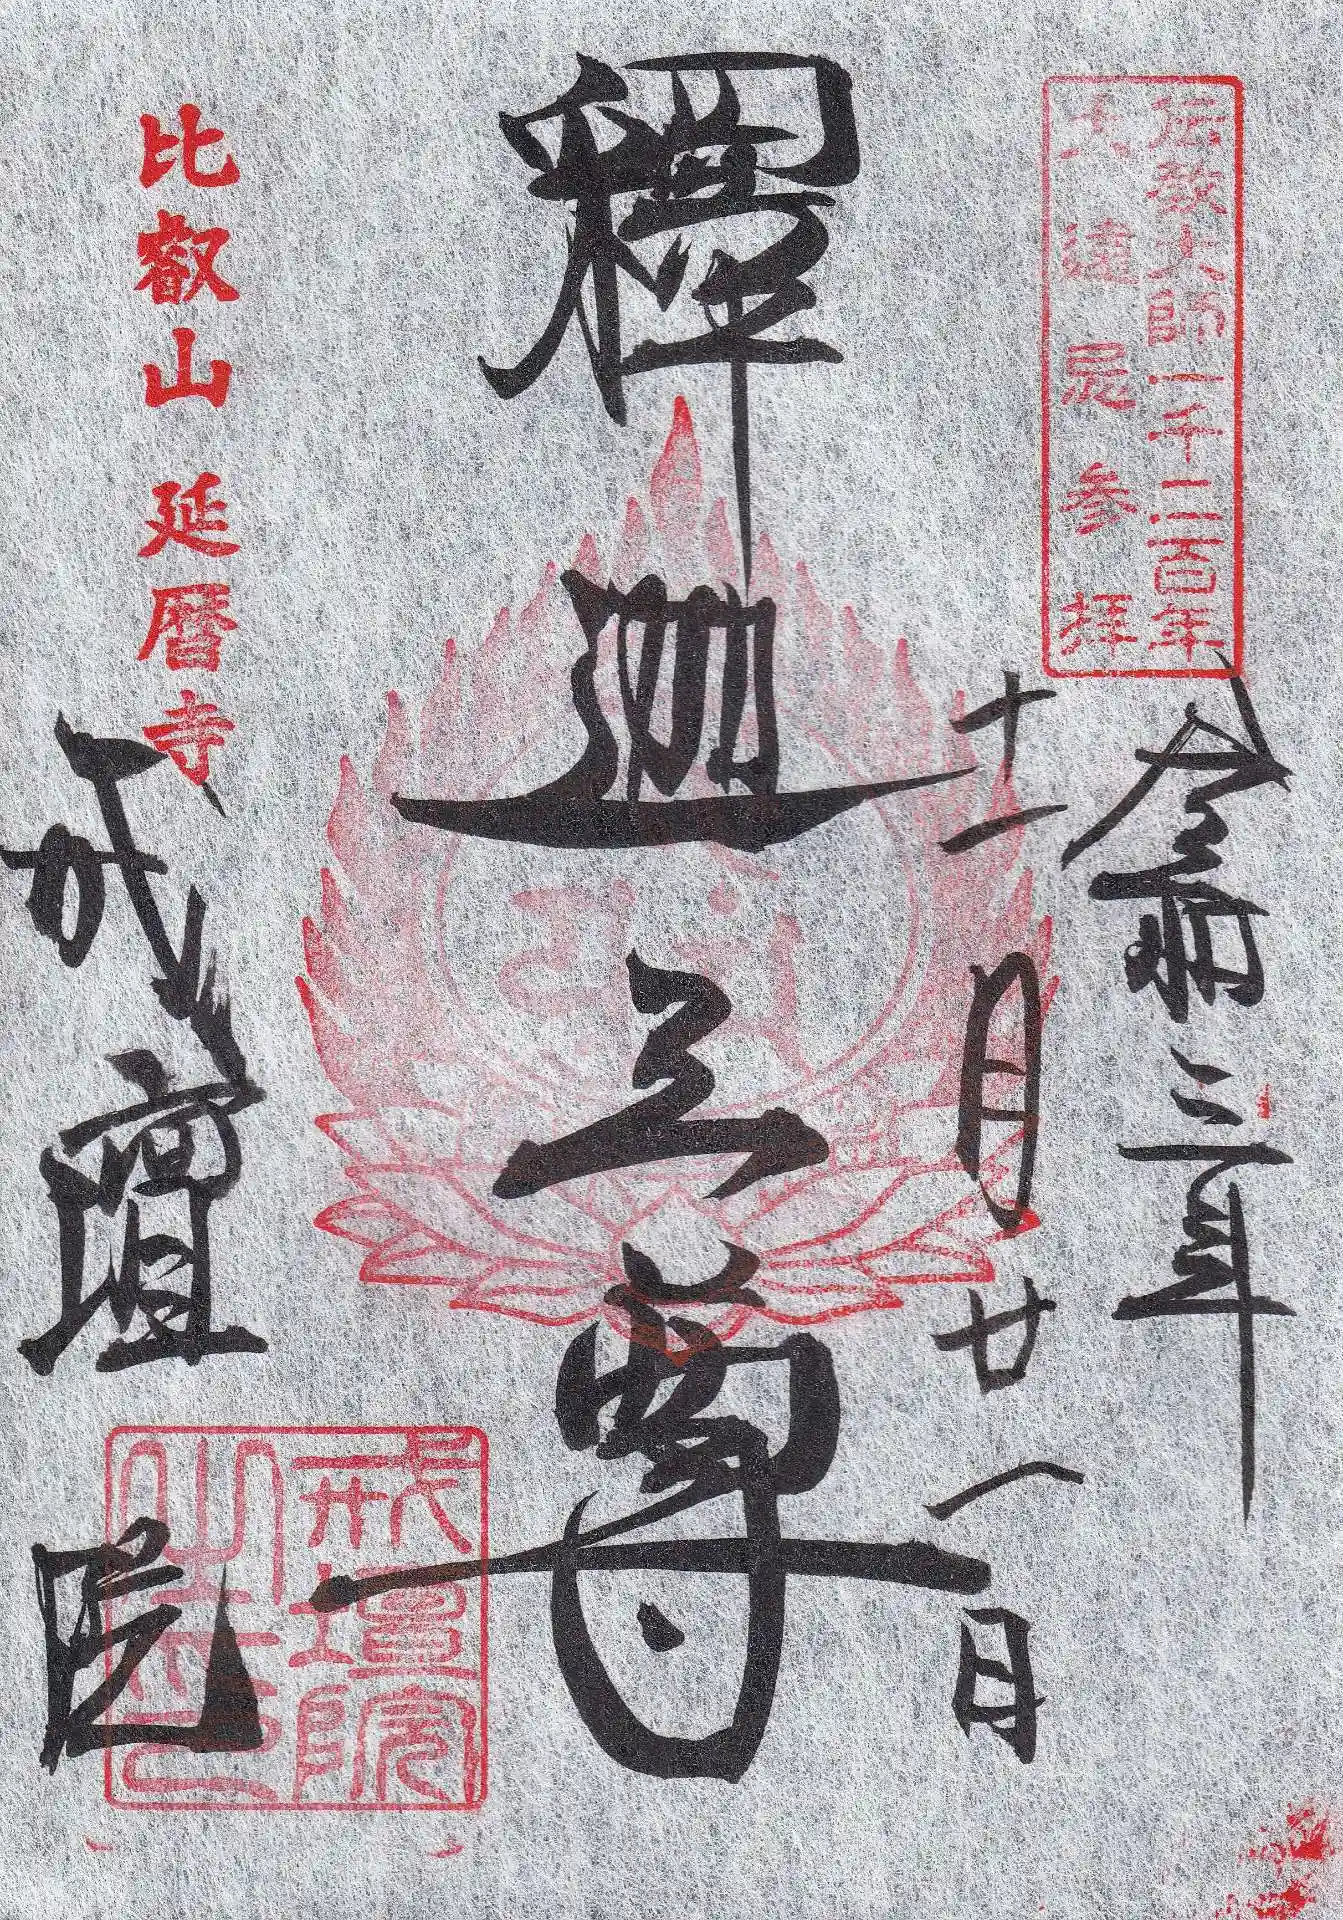 伝教大師一千二百年
大遠忌参拝
令和三年
十一月廿一日
釋迦三尊
比叡山 延暦寺
戒壇院
戒壇院
之印